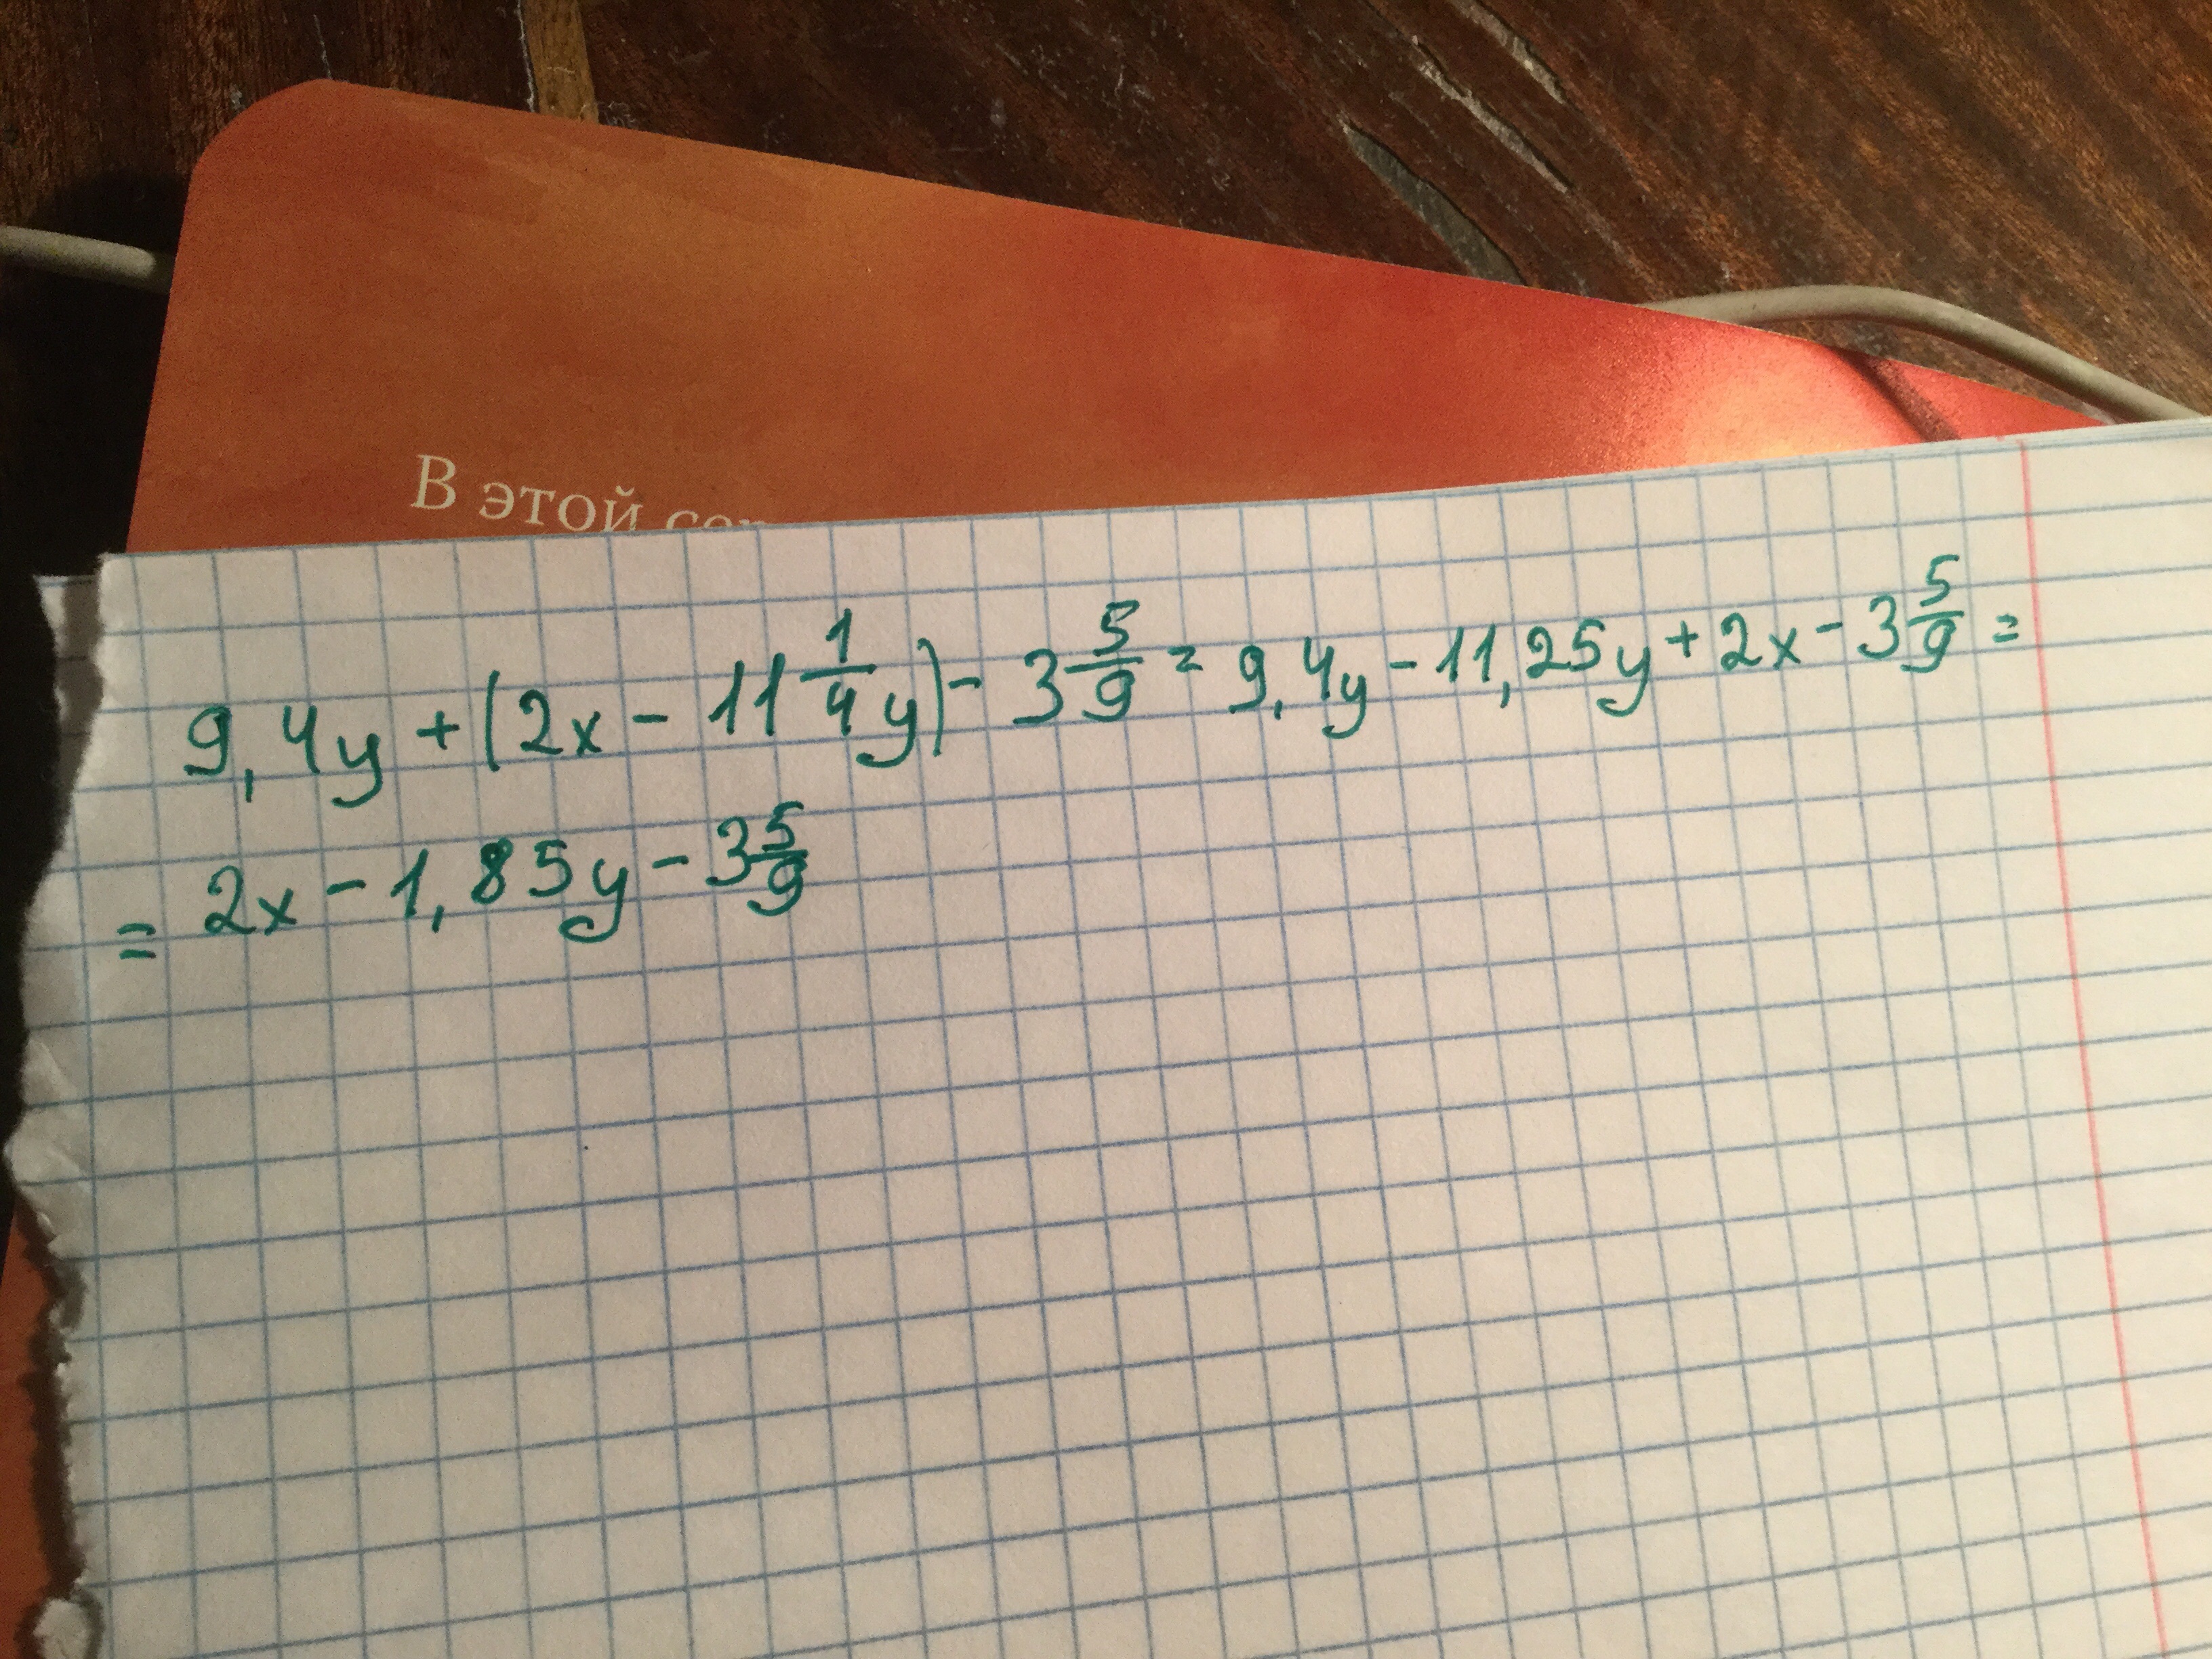 В этой
9,4y + (2x - 11 1/4 y) - 3 5/9 = 9,4y - 11,25y + 2x - 3 5/9 =
= 2x - 1,85y - 3 5/9